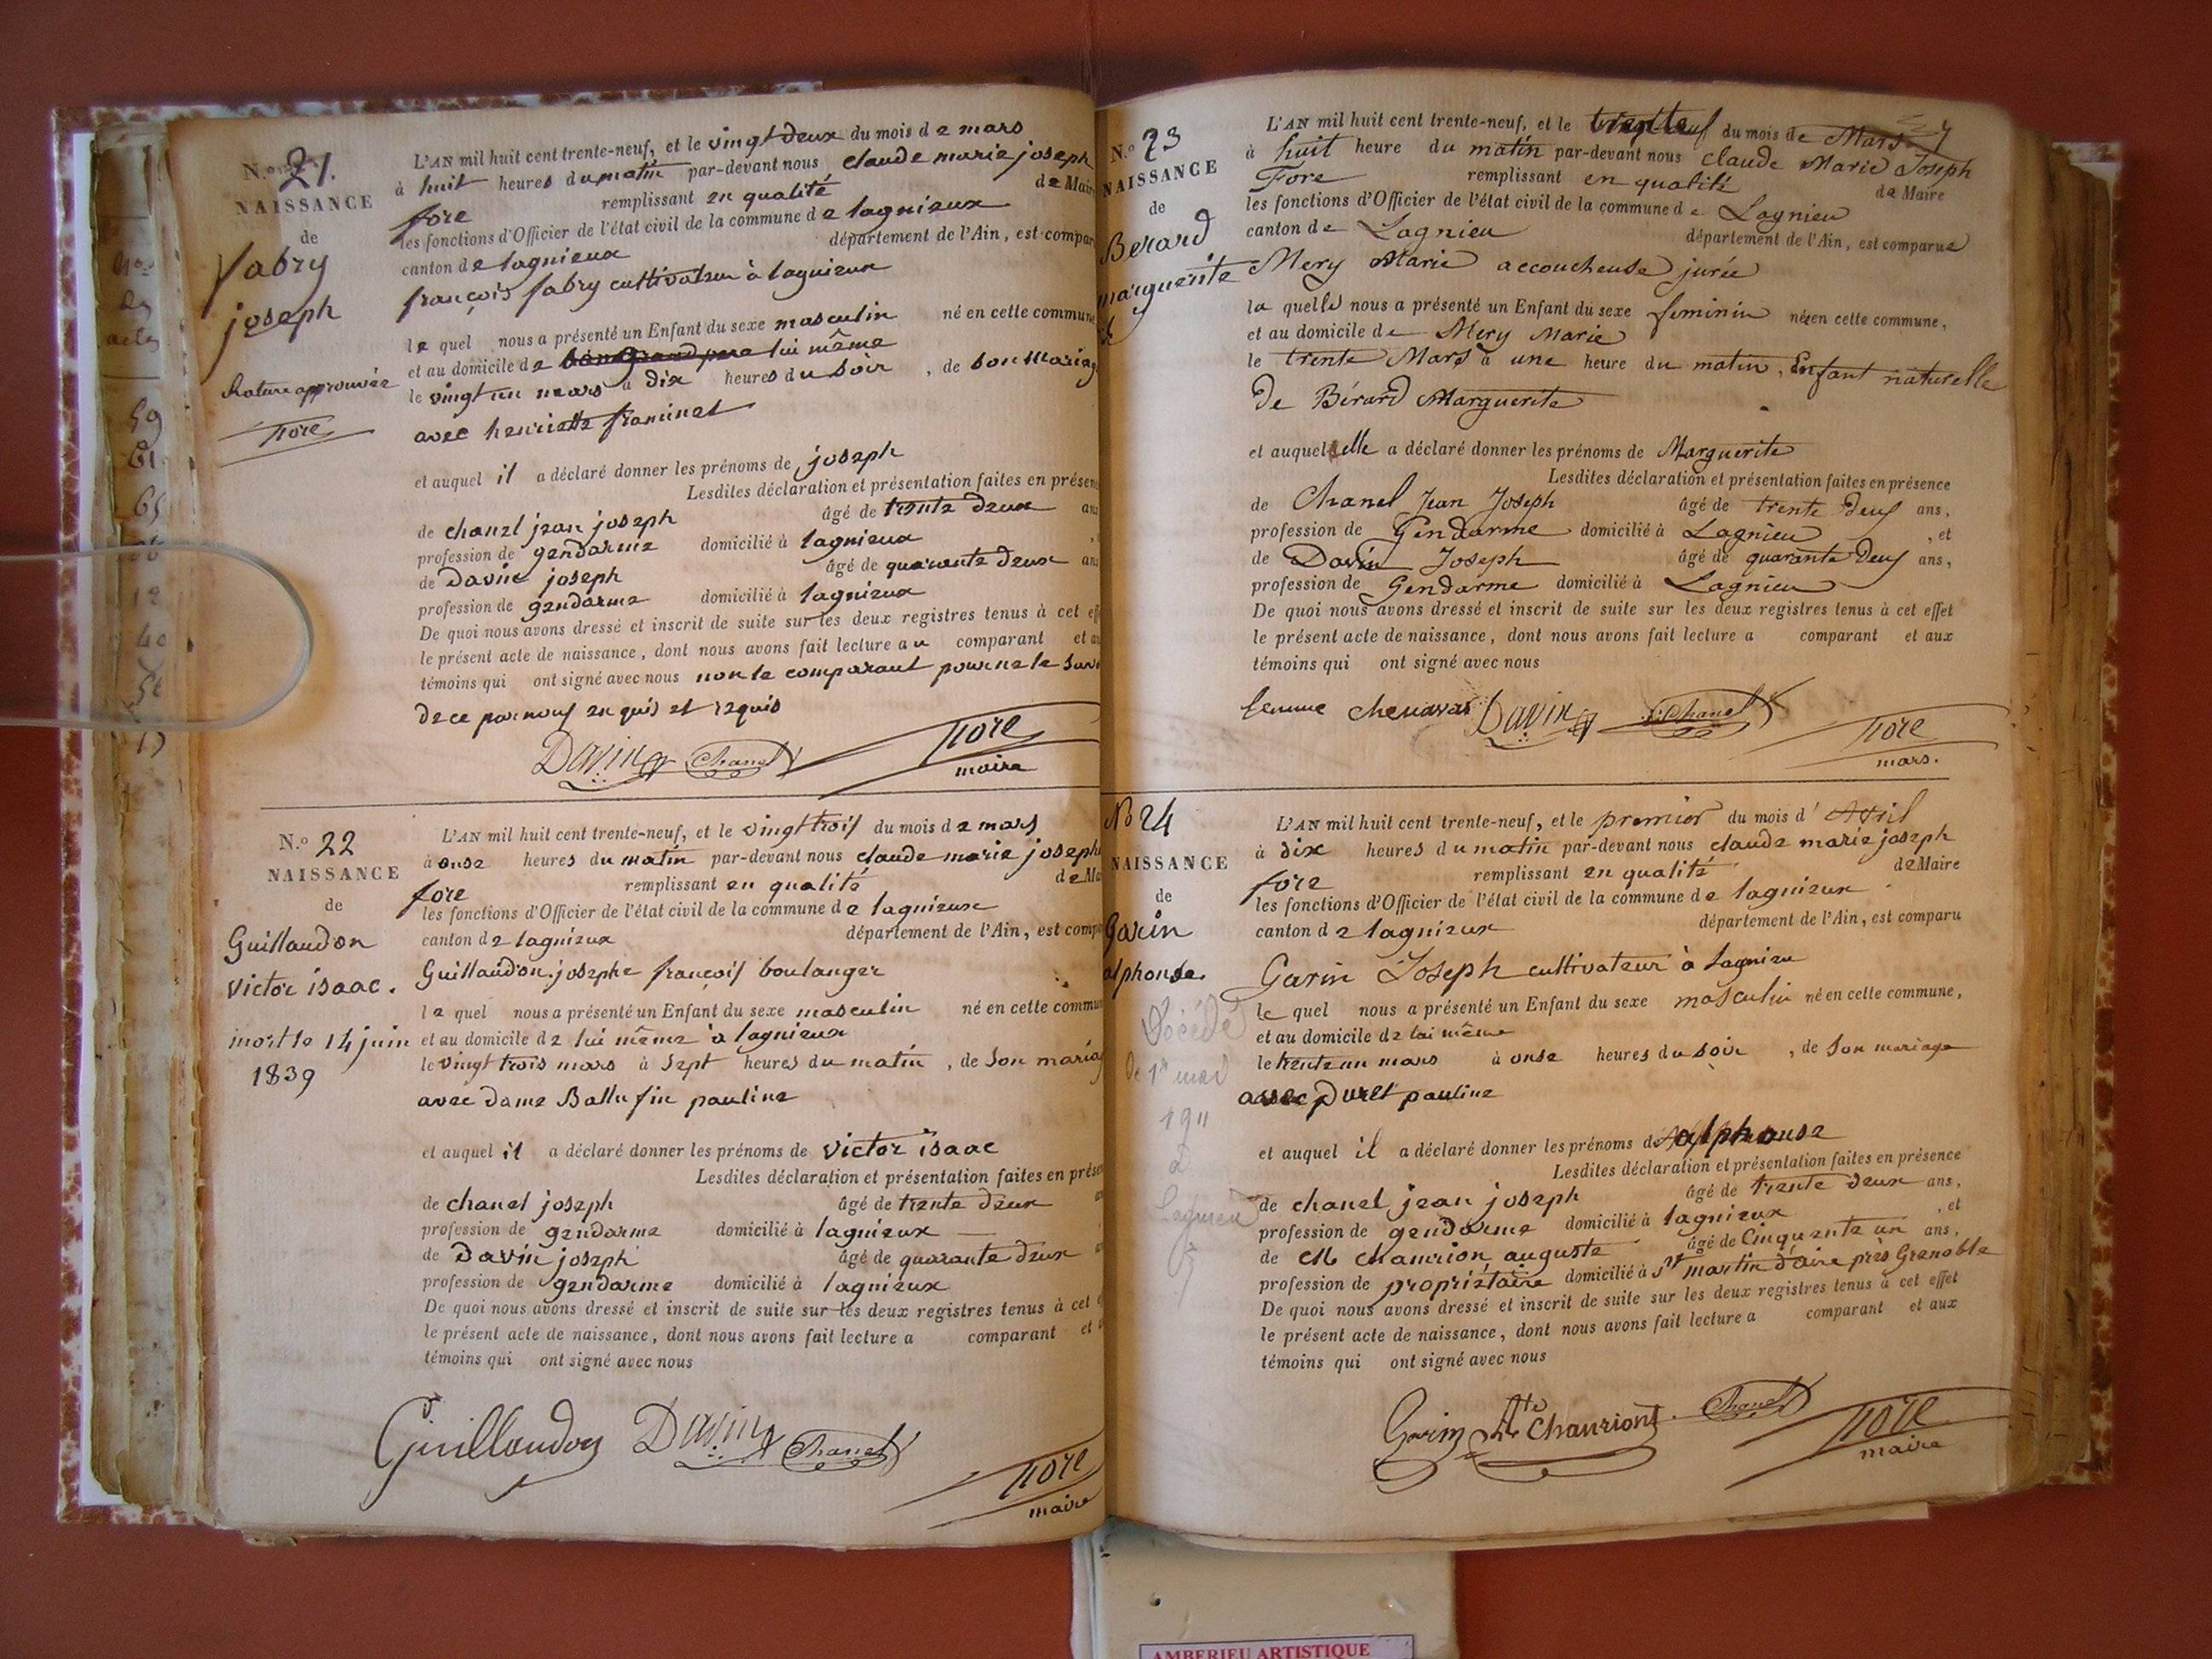 N.º 21.
NAISSANCE
de
fabry
joseph
Rature approuvée
fore
L'AN mil huit cent trente-neuf, et le vingt deux du mois de mars
à huit heures du matin par-devant nous claude marie joseph
fore remplissant en qualité de Mair
les fonctions d'Officier de l'état civil de la commune de lagnieux
canton de lagnieux département de l'Ain, est compar
françois fabry cultivateur à lagnieux
le quel nous a présenté un Enfant du sexe masculin né en cette commune
et au domicile de lui même
le vingt un mars à dix heures du soir, de son mariag
avec henriette framinet
et auquel il a déclaré donner les prénoms de joseph
Lesdites déclaration et présentation faites en présen
de chanel jean joseph âgé de trente deux ans
profession de gendarme domicilié à lagnieux
de Davin joseph âgé de quarante deux ans
profession de gendarme domicilié à lagnieux
De quoi nous avons dressé et inscrit de suite sur les deux registres tenus à cet eff
le présent acte de naissance, dont nous avons fait lecture au comparant et au
témoins qui ont signé avec nous non le comparant pour ne le savoi
de ce par nous enquis et requis
Davin Chanel fore
maire
N.º 22
NAISSANCE
de
Guillaudon
victor isaac.
mort le 14 juin
1839
L'AN mil huit cent trente-neuf, et le vingt trois du mois de mars
à onse heures du matin par-devant nous claude marie joseph
fore remplissant en qualité de Ma
les fonctions d'Officier de l'état civil de la commune de lagnieux
canton de lagnieux département de l'Ain, est compa
Guillaudon josephe françois boulanger
le quel nous a présenté un Enfant du sexe masculin né en cette commu
et au domicile de lui même à lagnieux
le vingt trois mars à sept heures du matin, de son mariag
avec dame Ballufin pauline
et auquel il a déclaré donner les prénoms de victor isaac
Lesdites déclaration et présentation faites en prése
de chanel joseph âgé de trente deux
profession de gendarme domicilié à lagnieux
de Davin joseph âgé de quarante deux
profession de gendarme domicilié à lagnieux
De quoi nous avons dressé et inscrit de suite sur les deux registres tenus à cet
le présent acte de naissance, dont nous avons fait lecture a comparant et
témoins qui ont signé avec nous
Guillaudon Davin Chanel
fore
maire
N.º 23
NAISSANCE
de
Berard
marguerite
L'AN mil huit cent trente-neuf, et le du mois de Mars
à huit heure du matin par-devant nous claude Marie Joseph
Fore remplissant en qualité de Maire
les fonctions d'Officier de l'état civil de la commune de Lagnieu
canton de Lagnieu département de l'Ain, est comparue
Mery Marie accoucheuse jurée
la quelle nous a présenté un Enfant du sexe feminin née en cette commune,
et au domicile de Mery Marie
le trente Mars à une heure du matin, Enfant naturelle
de Bérard Marguerite
et auquel elle a déclaré donner les prénoms de Marguerite
Lesdites déclaration et présentation faites en présence
de Chanel Jean Joseph âgé de trente deux ans,
profession de Gendarme domicilié à Lagnieu, et
de Davin Joseph âgé de quarante deux ans,
profession de Gendarme domicilié à Lagnieu
De quoi nous avons dressé et inscrit de suite sur les deux registres tenus à cet effet
le présent acte de naissance, dont nous avons fait lecture a comparant et aux
témoins qui ont signé avec nous
femme chenavas Davin Chanel
fore
mars.
No 24
NAISSANCE
de
Garin
alphonse.
Décédé
le 1er
1911
à
Lagnieu
L'AN mil huit cent trente-neuf, et le premier du mois d'Avril
à dix heures du matin par-devant nous claude marie joseph
fore remplissant en qualité de Maire
les fonctions d'Officier de l'état civil de la commune de lagnieux
canton de lagnieux département de l'Ain, est comparu
Garin Joseph cultivateur à lagnieu
le quel nous a présenté un Enfant du sexe masculin né en cette commune,
et au domicile de lui même
le trente un mars à onse heures du soir, de son mariage
avec Duret pauline
et auquel il a déclaré donner les prénoms de alphonse
Lesdites déclaration et présentation faites en présence
de chanel jean joseph âgé de trente deux ans,
profession de gendarme domicilié à lagnieux, et
de Chaurion auguste âgé de Cinquante un ans,
profession de propriétaire domicilié à St martin d'aire près Grenoble
De quoi nous avons dressé et inscrit de suite sur les deux registres tenus à cet effet
le présent acte de naissance, dont nous avons fait lecture a comparant et aux
témoins qui ont signé avec nous
Garin Chaurion Chanel
fore
maire
AMBERIEU ARTISTIQUE